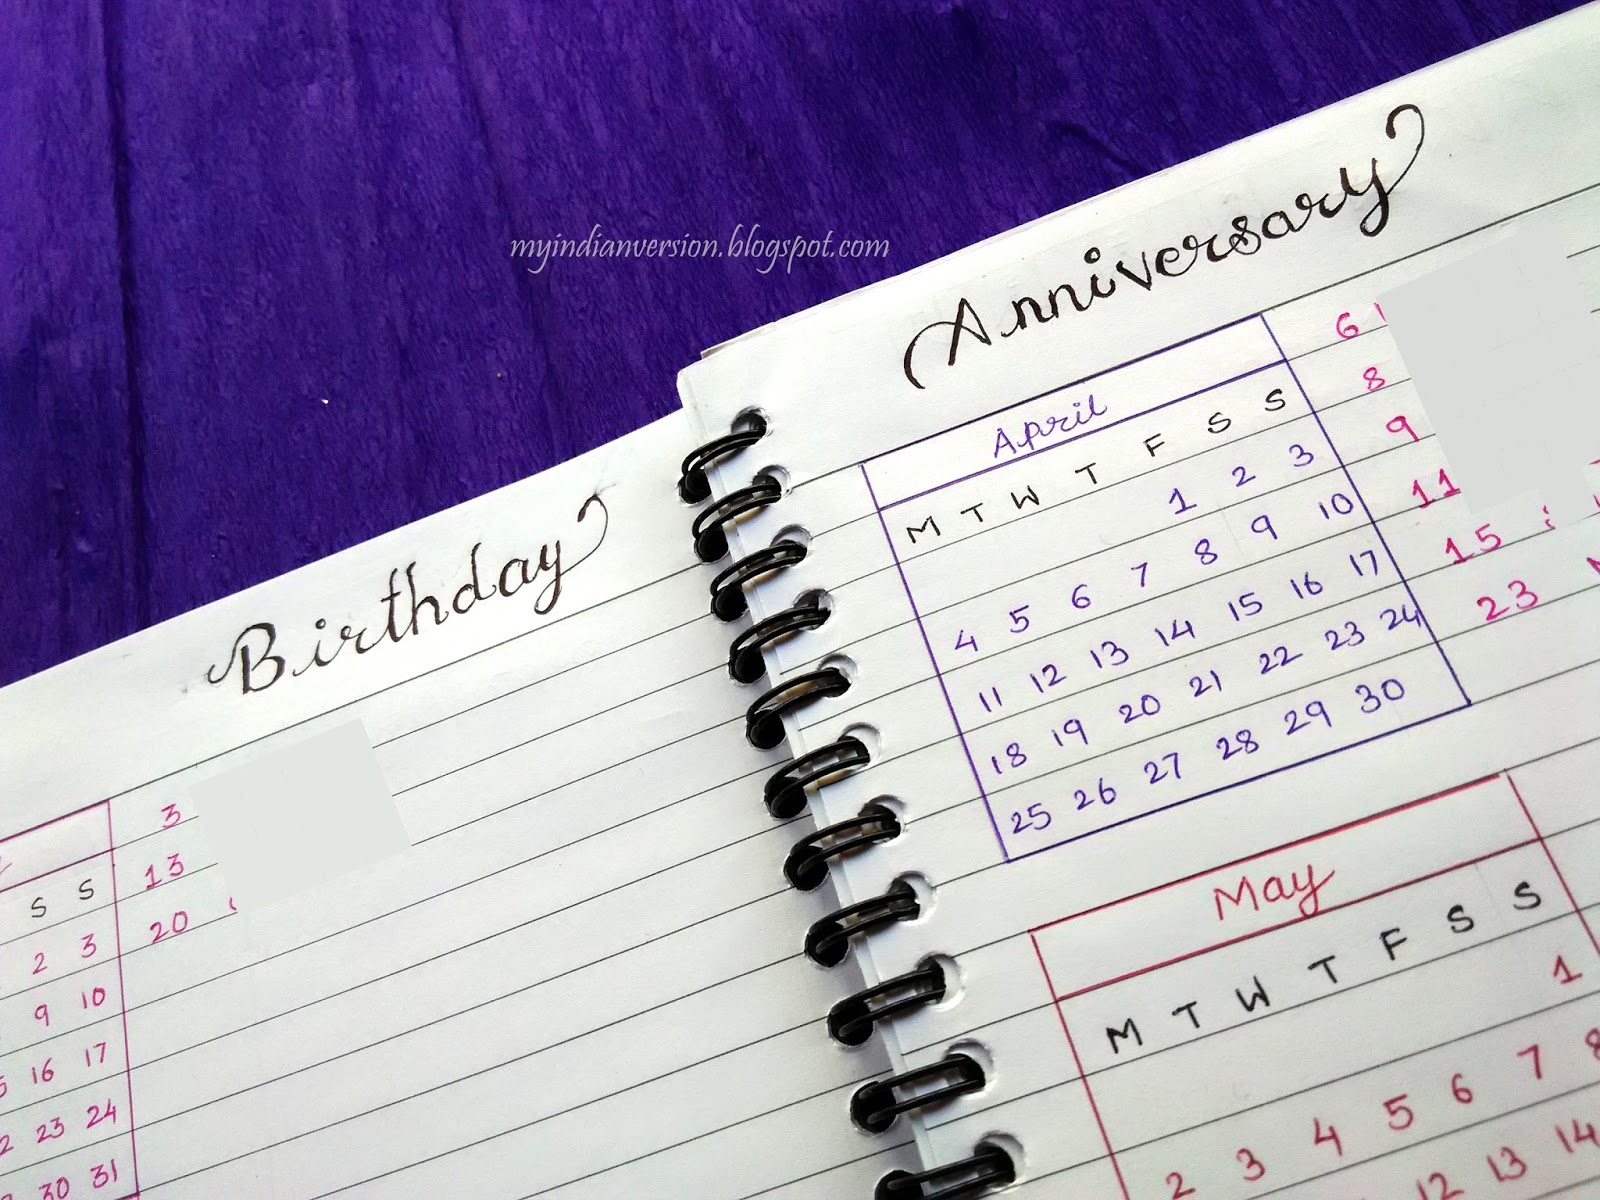 myindianversion.blogspot.com
Birthday
3
13
20
S S
2 3
9 10
16 17
23 24
30 31
Anniversary
April
M T W T F S S
1 2 3
4 5 6 7 8 9 10
11 12 13 14 15 16 17
18 19 20 21 22 23 24
25 26 27 28 29 30
6
8
9
11
15
23
May
M T W T F S S
1
2 3 4 5 6 7 8
12 13 14